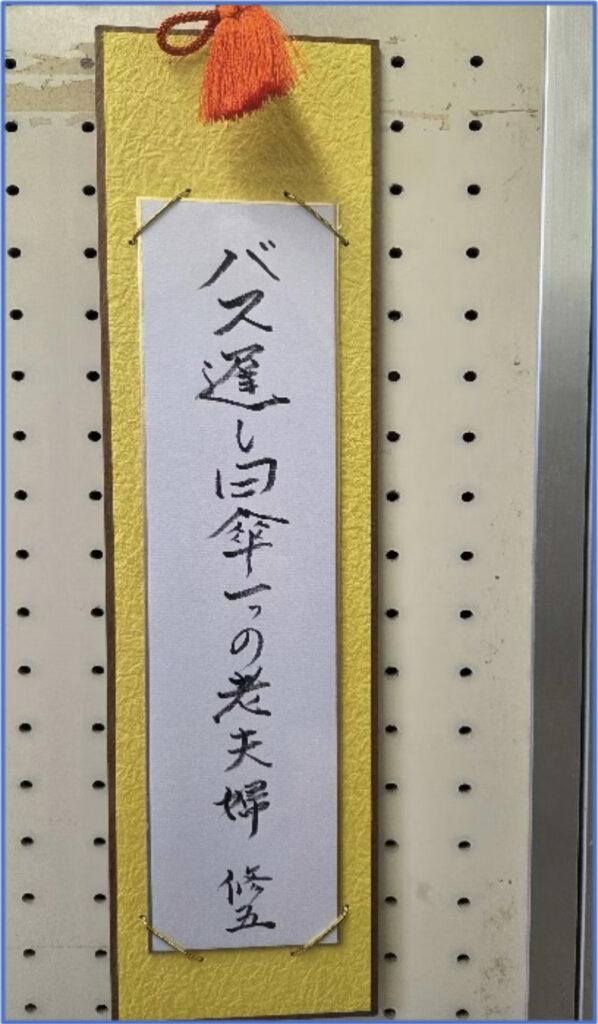 バス遅し日傘一つの老夫婦 修五